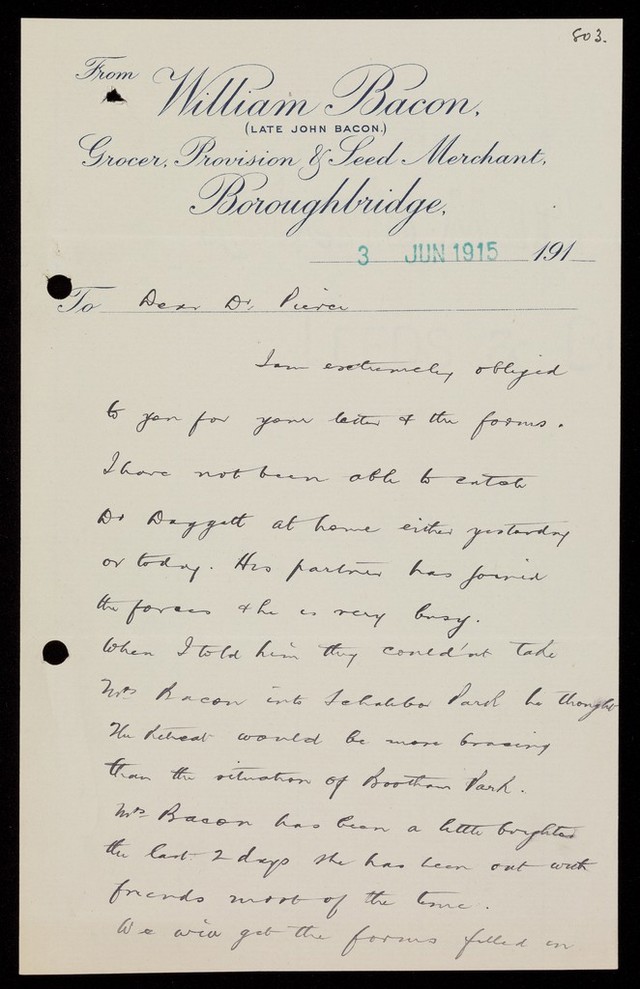 803.
From
William Bacon,
(LATE JOHN BACON.)
Grocer, Provision & Seed Merchant,
Boroughbridge,
3 JUN 1915 191
To Dear Dr. Pierce
I am extremely obliged
to you for your letter & the forms.
I have not been able to catch
Dr Daggett at home either yesterday
or today. His partner has joined
the forces & he is very busy.
When I told him they could'nt take
Mrs Bacon into Scalebor Park he thought
The Retreat would be more bracing
than the situation of Bootham Park.
Mrs Bacon has been a little brighter
the last 2 days she has been out with
friends most of the time.
We will get the forms filled in